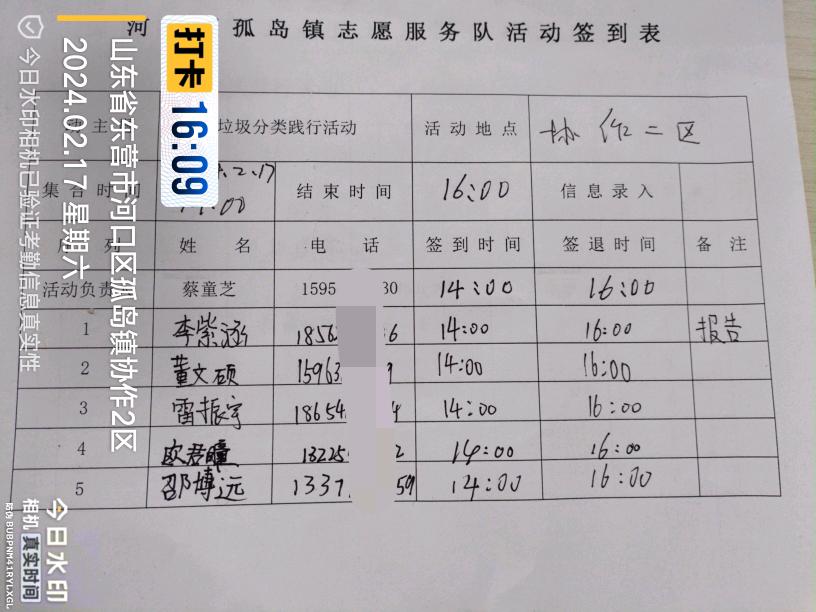 河 孤岛镇志愿服务队活动签到表
主 垃圾分类践行活动 活动地点 协作二区
集合时间 .2.17 :00 结束时间 16:00 信息录入
序列 姓名 电话 签到时间 签退时间 备注
活动负责 蔡童芝 1595 30 14:00 16:00
1 李紫涵 1856 6 14:00 16:00 报告
2 董文硕 15963 9 14:00 16:00
3 雷振宇 18654 4 14:00 16:00
4 欧君瞳 13225 2 14:00 16:00
5 邵博远 1337 59 14:00 16:00
打卡 16:09
山东省东营市河口区孤岛镇协作2区
2024.02.17 星期六
今日水印相机已验证考勤信息真实性
今日水印
相机 真实时间
防伪 BUBPNM41RYLXGL